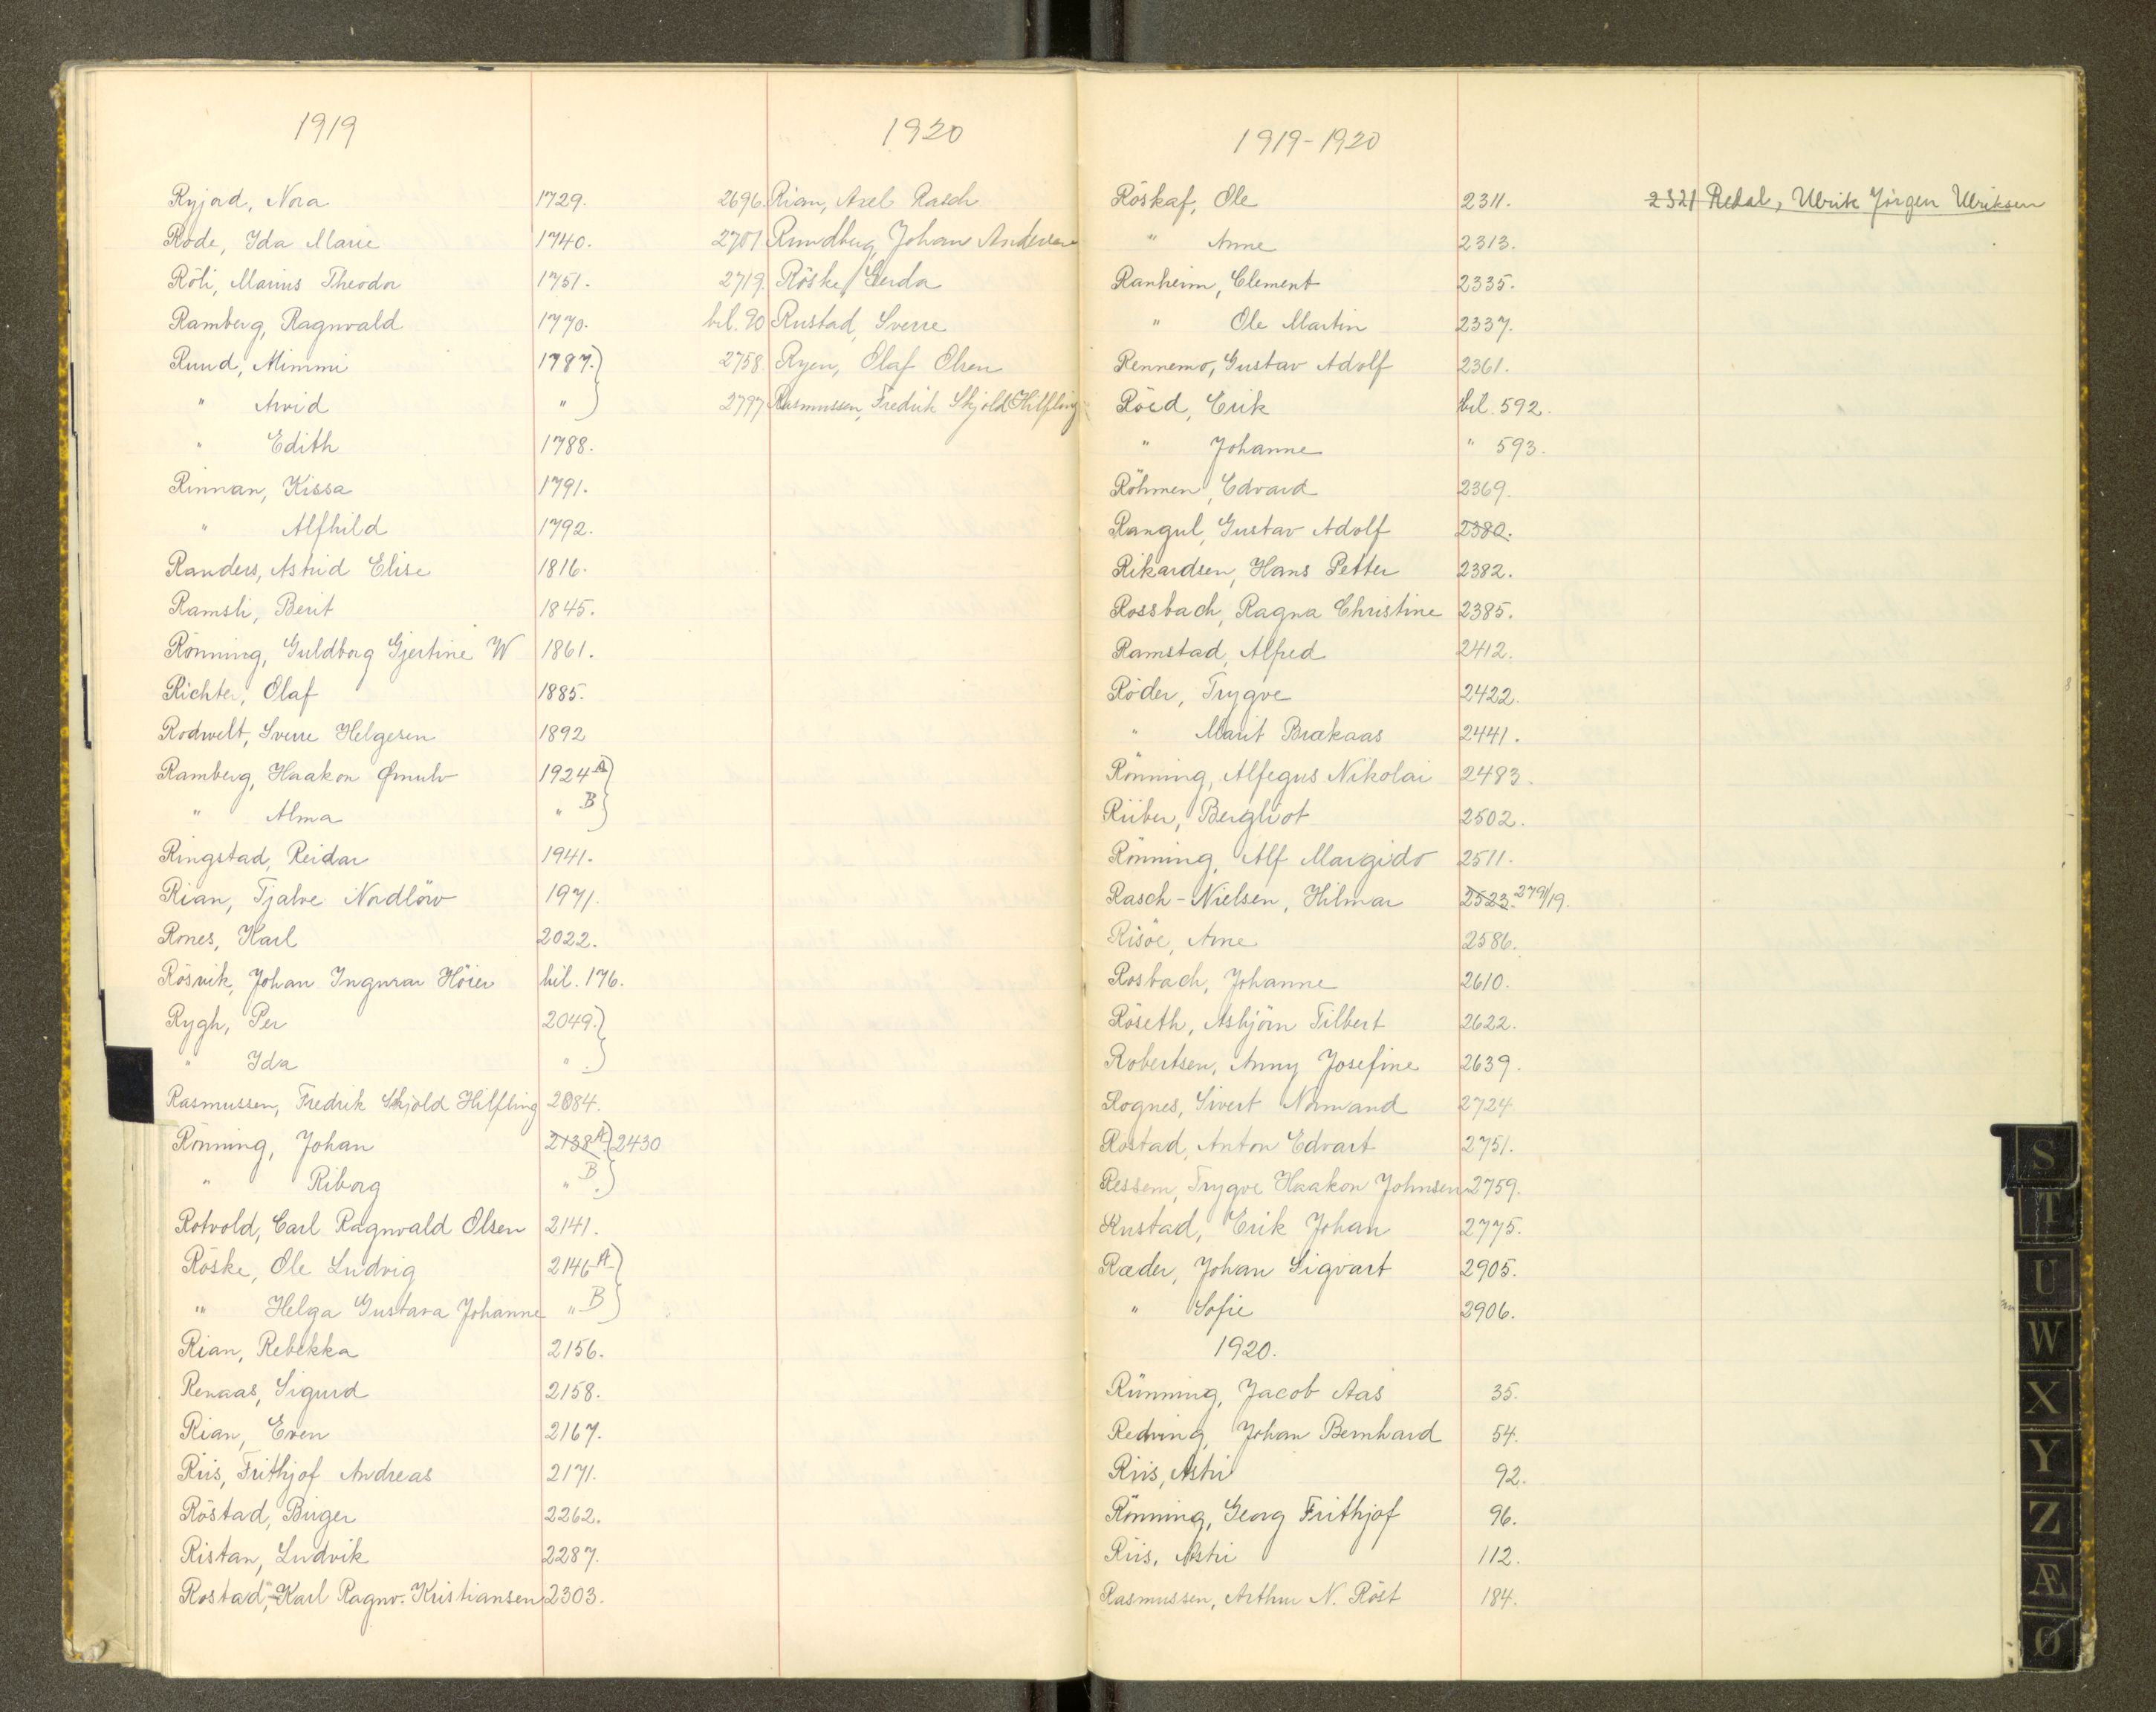 1919
Ryjord, Nora 1729.
Rode, Ida Marie 1740.
Röli, Marius Theodor 1751.
Ramberg, Ragnvald 1770.
Ruud, Mimmi 1787.
" Arvid "
" Edith 1788.
Rinnan, Kissa 1791.
" Alfhild 1792.
Randers, Astrid Elise 1816.
Ramsli, Berit 1845.
Rönning, Guldborg Gjertine W 1861.
Richter, Olaf 1885.
Rodwelt, Sverre Helgesen 1892
Ramberg, Haakon Ørnulv 1924 A
" Alma " B
Ringstad, Reidar 1941.
Rian, Tjalve Nordlöw 1971.
Rones, Karl 2022.
Rösvik, Johan Ingvar Höier bil. 176.
Rygh, Per 2049.
" Ida "
Rasmussen, Fredrik Skjold Hilfling 2084.
Rönning, Johan 2138 A. 2430
" Riborg " B.
Rotvold, Carl Ragnvald Olsen 2141.
Röske, Ole Ludvig 2146 A
" Helga Gustava Johanne " B
Rian, Rebekka 2156.
Renaas, Sigurd 2158.
Rian, Even 2167.
Riis, Frithjof Andreas 2171.
Röstad, Birger 2262.
Ristan, Ludvik 2287.
Rostad, Karl Ragnv. Kristiansen 2303.
1920
2696 Rian, Axel Rasch
2701 Rundberg, Johan Andersen
2719. Röske, Gerda
bil. 90 Rustad, Sverre
2758. Ryen, Olaf Olsen
2797 Rasmussen, Fredrik Skjold Hilfling
1919-1920
Röskaf, Ole 2311.
" Anne 2313.
Ranheim, Clement 2335.
" Ole Martin 2337.
Rennemo, Gustav Adolf 2361.
Röed, Erik bil. 592.
" Johanne " 593.
Röhmen, Edvard 2369.
Rangul, Gustav Adolf 2380.
Rikardsen, Hans Petter 2382.
Rossbach, Ragna Christine 2385.
Ramstad, Alfred 2412.
Röder, Trygve 2422.
" Marit Brækaas 2441.
Rönning, Alfegus Nikolai 2483.
Riiber, Bergliot 2502.
Rönning, Alf Margido 2511.
Rasch-Nielsen, Hilmar 2523. 2791/19.
Risöe, Arne 2586.
Rosbach, Johanne 2610.
Röseth, Asbjörn Tilbert 2622.
Robertsen, Anny Josefine 2639.
Rognes, Sivert Normand 2724
Rostad, Anton Edvart 2751.
Ressem, Trygve Haakon Johnsen 2759.
Rustad, Erik Johan 2775.
Ræder, Johan Sigvart 2905.
" Sofie 2906.
1920.
Rünning, Jacob Aas 35.
Redving, Johan Bernhard 54.
Riis, Astri 92.
Rönning, Georg Frithjof 96.
Riis, Astri 112.
Rasmussen, Arthur N. Röst 184.
2321 Rekal, Ulrik Jörgen Ulriksen
S
T
U
W
X
Y
Z
Æ
Ø